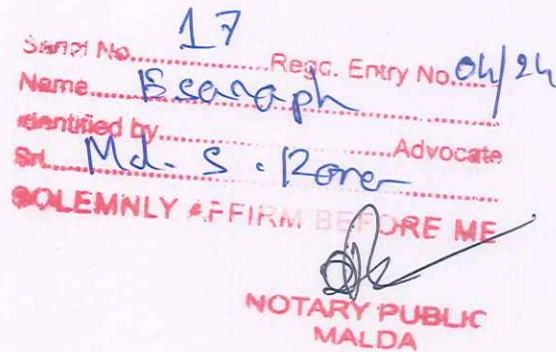 Serial No. 17 Regd. Entry No. 04/24
Name
Identified by Advocate
Sri Md. S.
SOLEMNLY AFFIRM BEFORE ME
NOTARY PUBLIC
MALDA